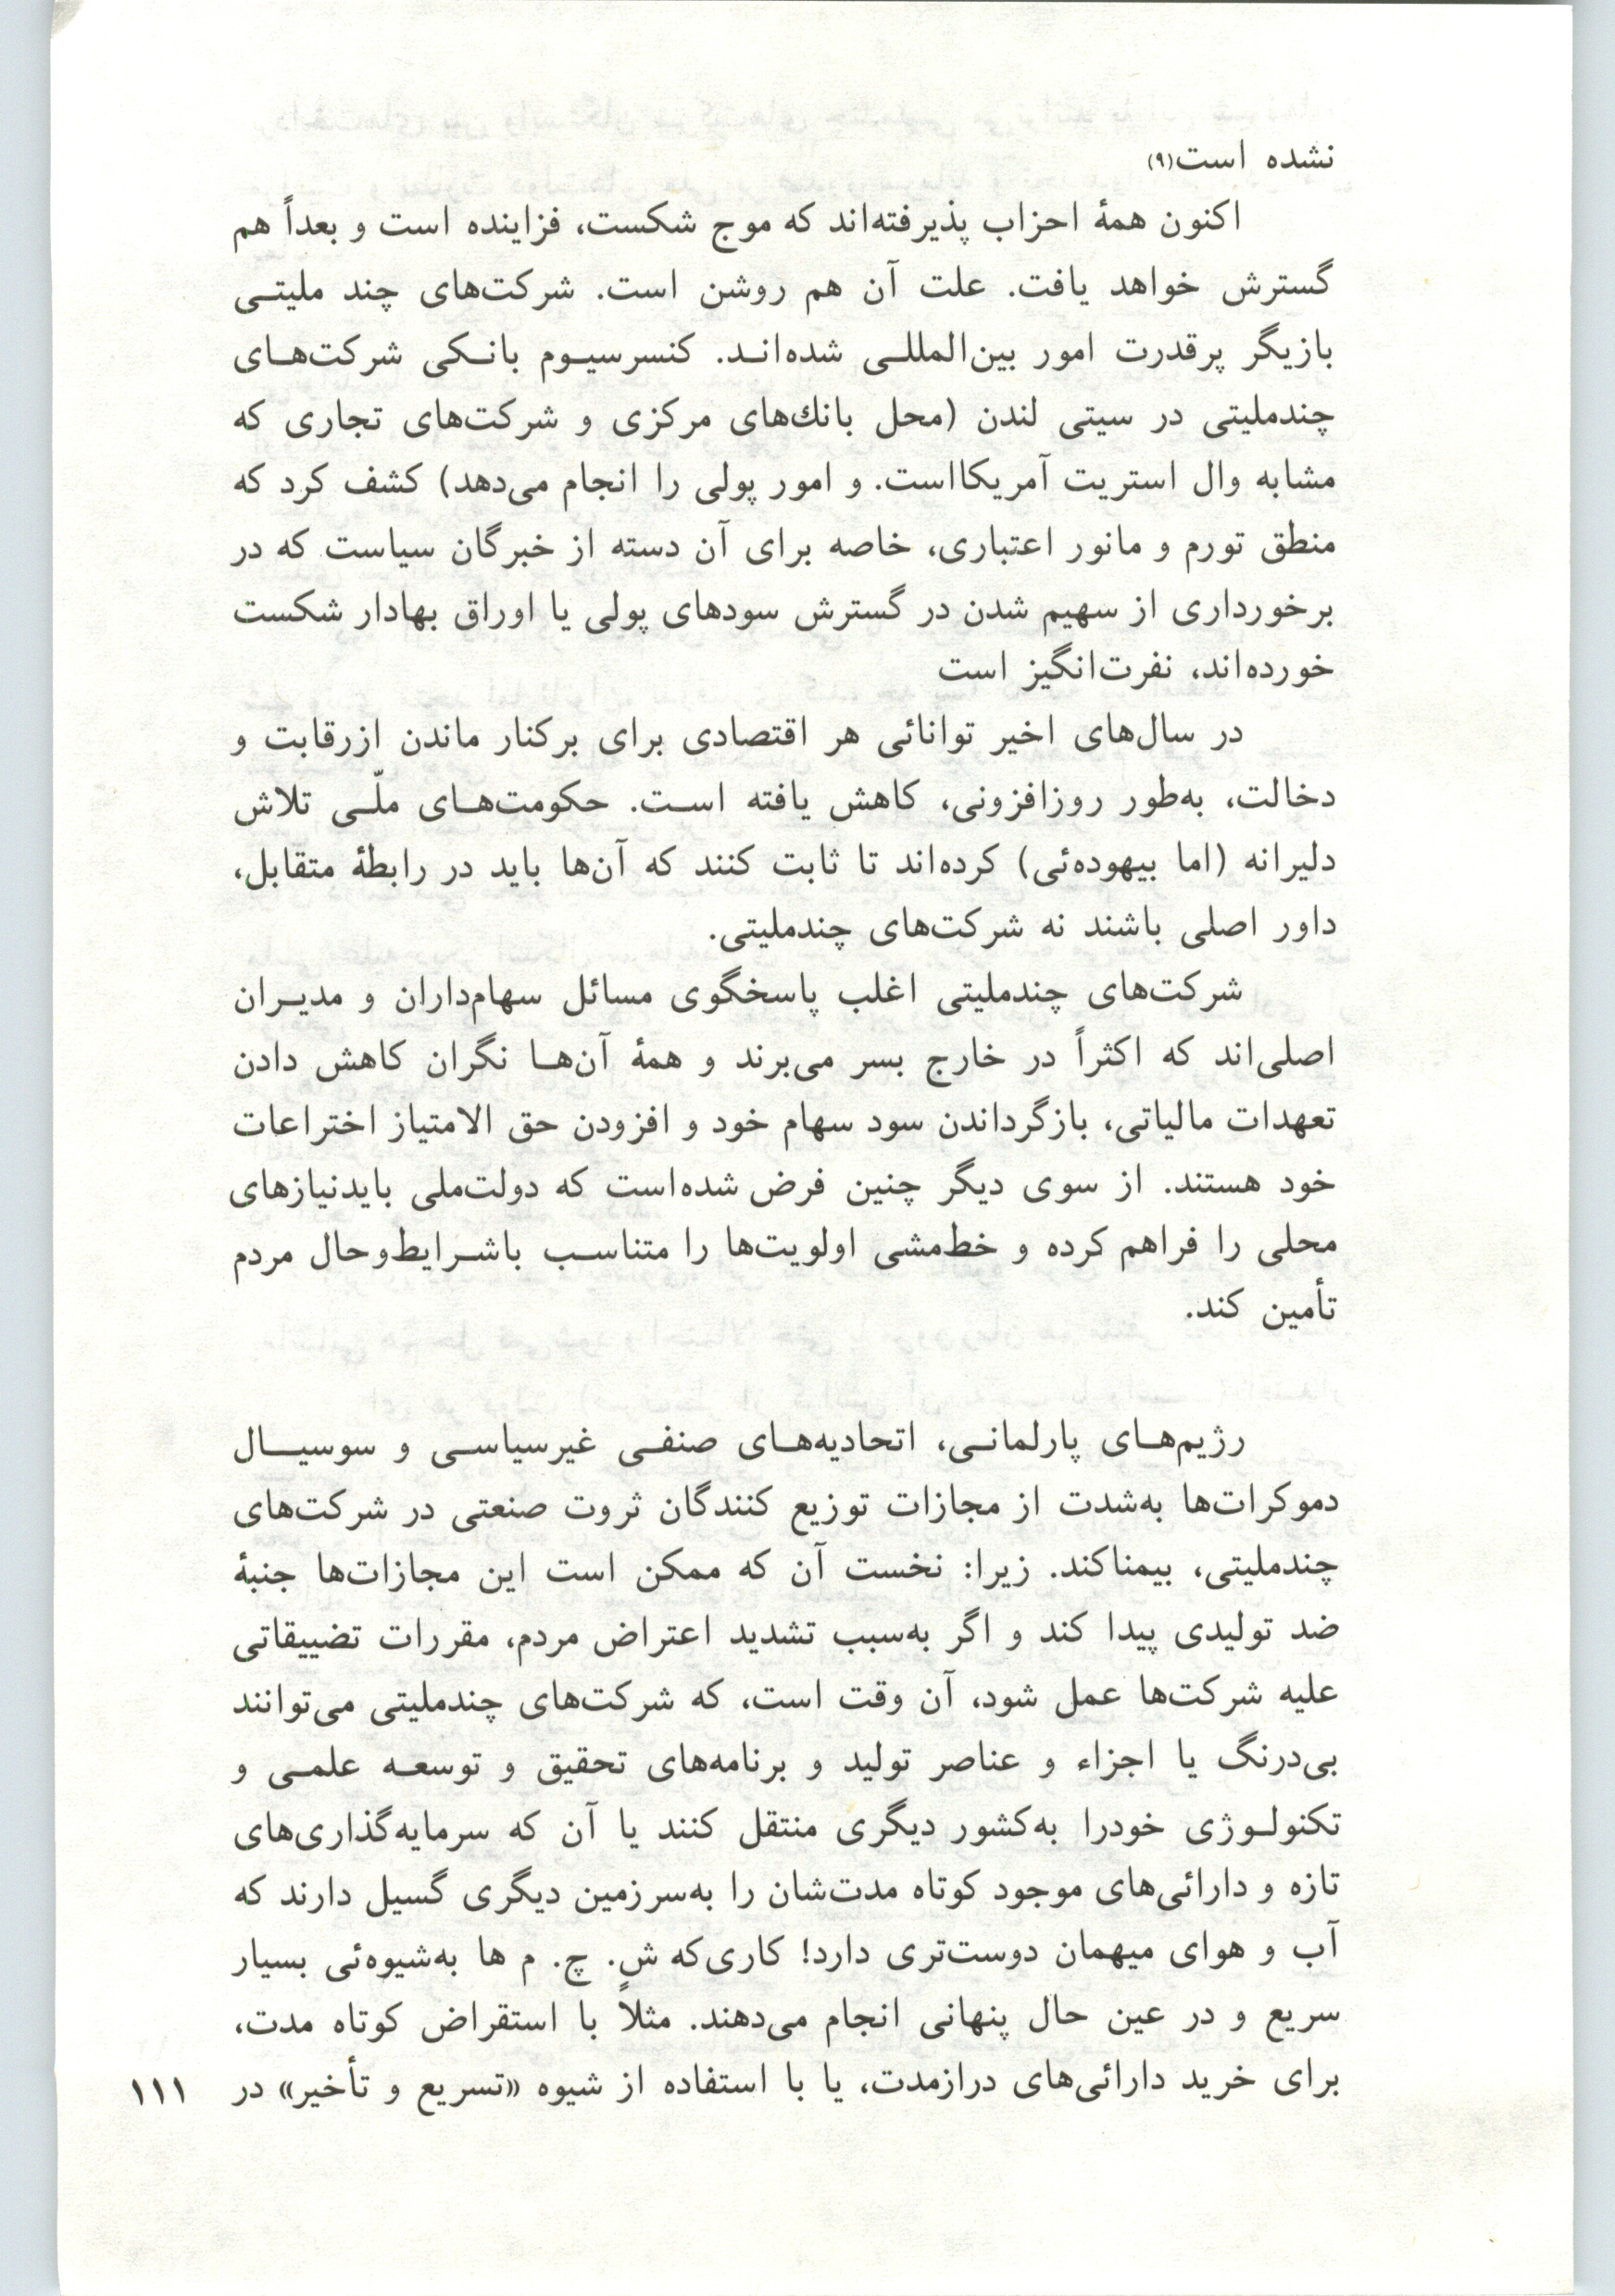 نشده است(۹)
اکنون همهٔ احزاب پذیرفته‌اند که موج شکست، فزاینده است و بعداً هم
گسترش خواهد یافت. علت آن هم روشن است. شرکت‌های چند ملیتی
بازیگر پرقدرت امور بین‌المللی شده‌اند. کنسرسیوم بانکی شرکت‌های
چندملیتی در سیتی لندن (محل بانك‌های مرکزی و شرکت‌های تجاری که
مشابه وال استریت آمریکااست. و امور پولی را انجام می‌دهد) کشف کرد که
منطق تورم و مانور اعتباری، خاصه برای آن دسته از خبرگان سیاست که در
برخورداری از سهیم شدن در گسترش سودهای پولی یا اوراق بهادار شکست
خورده‌اند، نفرت‌انگیز است
در سال‌های اخیر توانائی هر اقتصادی برای برکنار ماندن ازرقابت و
دخالت، به‌طور روزافزونی، کاهش یافته است. حکومت‌های ملّی تلاش
دلیرانه (اما بیهوده‌ئی) کرده‌اند تا ثابت کنند که آن‌ها باید در رابطهٔ متقابل،
داور اصلی باشند نه شرکت‌های چندملیتی.
شرکت‌های چندملیتی اغلب پاسخگوی مسائل سهام‌داران و مدیران
اصلی‌اند که اکثراً در خارج بسر می‌برند و همهٔ آن‌ها نگران کاهش دادن
تعهدات مالیاتی، بازگرداندن سود سهام خود و افزودن حق الامتیاز اختراعات
خود هستند. از سوی دیگر چنین فرض شده‌است که دولت‌ملی بایدنیازهای
محلی را فراهم کرده و خط‌مشی اولویت‌ها را متناسب باشرایط‌وحال مردم
تأمین کند.
رژیم‌های پارلمانی، اتحادیه‌های صنفی غیرسیاسی و سوسیال
دموکرات‌ها به‌شدت از مجازات توزیع کنندگان ثروت صنعتی در شرکت‌های
چندملیتی، بیمناکند. زیرا: نخست آن که ممکن است این مجازات‌ها جنبهٔ
ضد تولیدی پیدا کند و اگر به‌سبب تشدید اعتراض مردم، مقررات تضییقاتی
علیه شرکت‌ها عمل شود، آن وقت است، که شرکت‌های چندملیتی می‌توانند
بی‌درنگ یا اجزاء و عناصر تولید و برنامه‌های تحقیق و توسعه علمی و
تکنولوژی خودرا به‌کشور دیگری منتقل کنند یا آن که سرمایه‌گذاری‌های
تازه و دارائی‌های موجود کوتاه مدت‌شان را به‌سرزمین دیگری گسیل دارند که
آب و هوای میهمان دوست‌تری دارد! کاری‌که ش. چ. م ها به‌شیوه‌ئی بسیار
سریع و در عین حال پنهانی انجام می‌دهند. مثلاً با استقراض کوتاه مدت،
برای خرید دارائی‌های درازمدت، یا با استفاده از شیوه «تسریع و تأخیر» در
۱۱۱